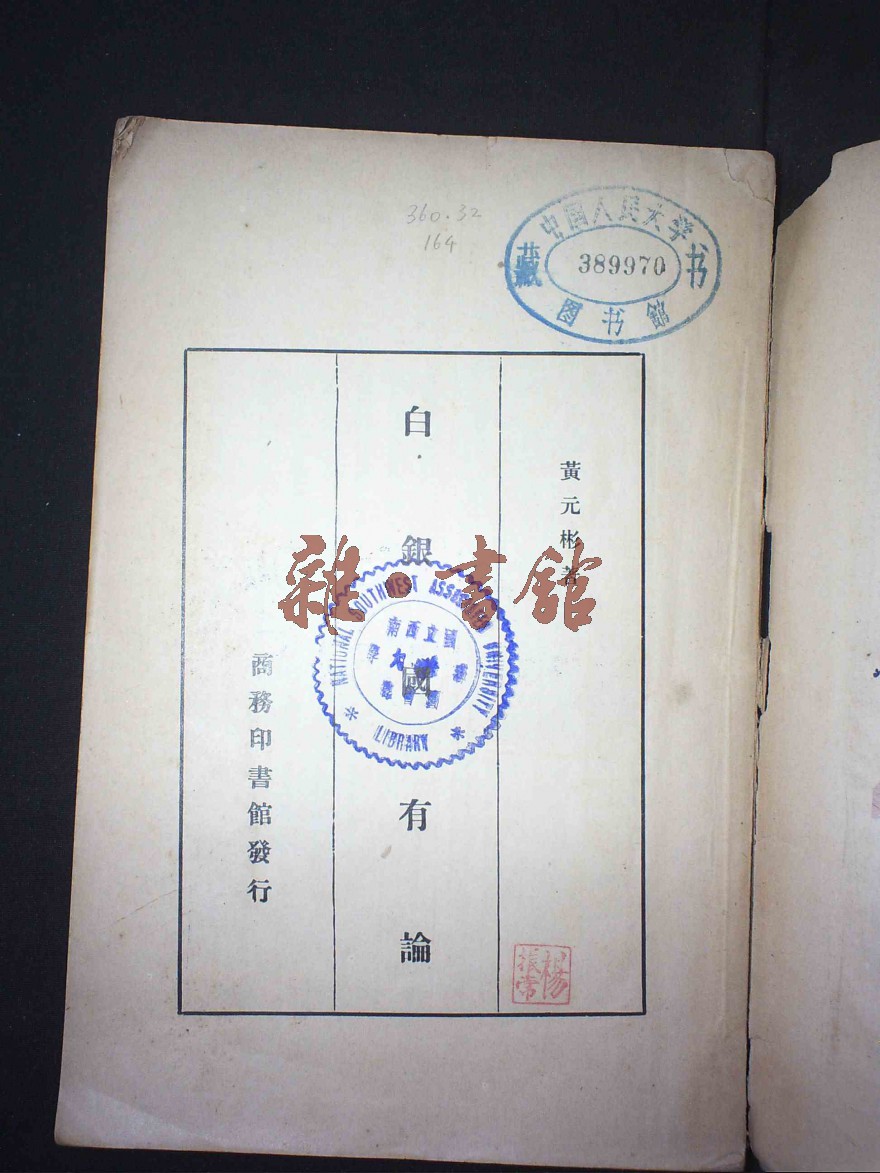 360.32
164
中国人民大学
藏 389970 书
图书馆
黃元彬著
白銀國有論
商務印書館發行
雜·書館
NATIONAL SOUTHWEST ASSOCIATED UNIVERSITY
LIBRARY
國立西南
聯大學
圖書館
楊
振常